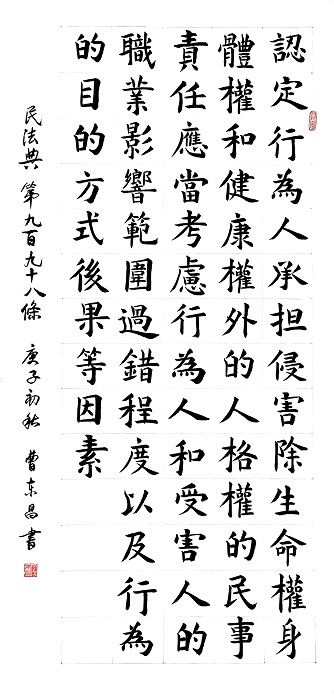 認定行為人承担侵害除生命權身
體權和健康權外的人格權的民事
責任應當考慮行為人和受害人的
職業影響範圍過錯程度以及行為
的目的方式後果等因素
民法典 第九百九十八條 庚子初秋 曹東昌書